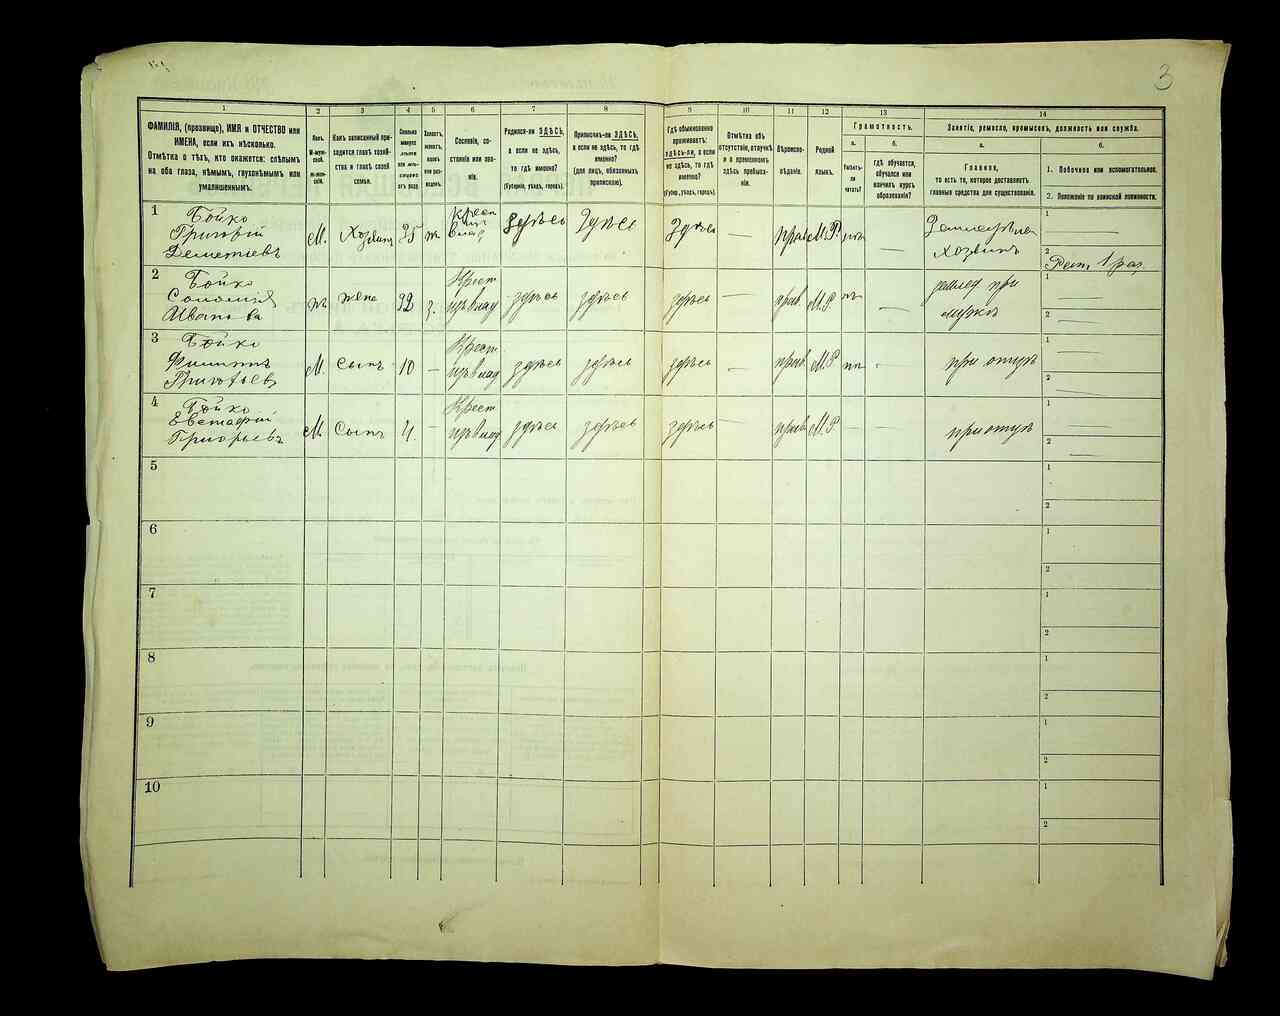 3
1
2
3
4
5
6
7
8
9
10
11
12
13
14
ФАМИЛІЯ, (прозвище), ИМЯ и ОТЧЕСТВО или
ИМЕНА, если ихъ нѣсколько.
Отмѣтка о тѣхъ, кто окажется: слѣпымъ
на оба глаза, нѣмымъ, глухонѣмымъ или
умалишеннымъ.
Полъ.
Какъ записанный при-
ходится главѣ хозяй-
ства и главѣ своей
семьи.
Сословіе, со-
стояніе или зва-
ніе.
Родился-ли ЗДѢСЬ,
а если не здѣсь,
то гдѣ именно?
(Губернія, уѣздъ, городъ).
Приписанъ-ли ЗДѢСЬ,
а если не здѣсь, то гдѣ
именно?
(для лицъ, обязанныхъ
припискою).
Гдѣ обыкновенно
проживаетъ:
ЗДѢСЬ-ли, а если
не здѣсь, то гдѣ
именно?
(Губер., уѣздъ, городъ).
Отмѣтка объ
отсутствіи, отлучкѣ
и о временномъ
здѣсь пребыва-
ніи.
Вѣроиспо-
вѣданіе.
Родной
языкъ.
Грамотность.
а.
б.
Умѣетъ-
ли
читать?
гдѣ обучается,
обучался или
кончилъ курсъ
образованія?
Занятіе, ремесло, промыселъ, должность или служба.
а.
б.
Главное,
то есть то, которое доставляетъ
главныя средства для существованія.
1. Побочное или вспомогательное.
2. Положеніе по воинской повинности.
1
Бойко
Григорій
Деметіевъ
М.
Хозяинъ
35
ж
Крест
изъ
влад
Здѣсь
Здѣсь
Здѣсь
прав
М.Р.
Хозяинъ
1
2
1 раз.
2
Бойко
Соломія
Иванова
ж
жена
32
з.
Крест
изъ влад
здѣсь
здѣсь
здѣсь
—
прав.
М.Р.
—
землед при
мужѣ
1
2
3
Бойко
Филиппъ
Григорьев
М.
Сынъ
10
—
Крест
изъ влад
здѣсь
здѣсь
здѣсь
—
прав
М.Р
при отцѣ
1
2
4
Бойко
Евстафій
Григорьевъ
М.
Сынъ
4.
—
Крест
изъ влад
здѣсь
здѣсь
здѣсь
прав
М.Р.
—
—
при отцѣ
1
2
5
1
2
6
1
2
7
1
2
8
1
2
9
1
2
10
1
2